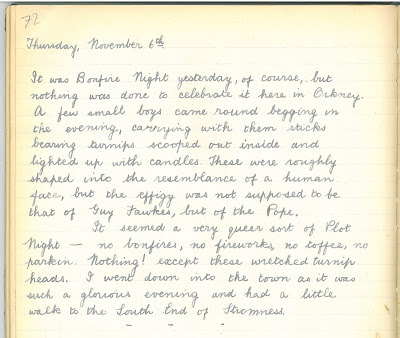 72
Thursday, November 6th.
It was Bonfire Night yesterday, of course, but
nothing was done to celebrate it here in Orkney.
A few small boys came round begging in
the evening, carrying with them sticks
bearing turnips scooped out inside and
lighted up with candles. These were roughly
shaped into the resemblance of a human
face, but the effigy was not supposed to be
that of Guy Fawkes, but of the Pope.
It seemed a very queer sort of Plot
Night — no bonfires, no fireworks, no toffee, no
parkin. Nothing! except these wretched turnip
heads. I went down into the town as it was
such a glorious evening and had a little
walk to the South End of Stromness.
- - -